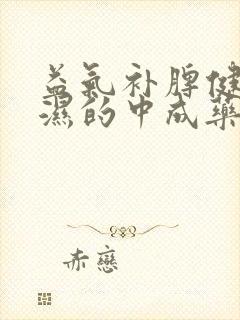 益氣补脾健
濕的中成藥
赤戀